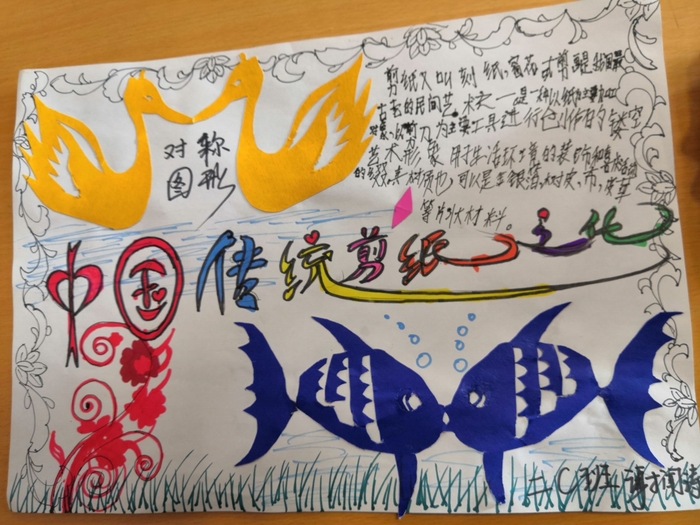 剪纸又叫刻纸,窗花或剪
古老的民间艺术之一是一种以纸为主要加工
对象,以剪刀为主要工具进行创作的镂空
艺术形象 用于生活环境的装饰
的 其材质也,可以是金银箔,树皮,布,皮革
等片状材料。
对称
图形
中国传统剪纸文化